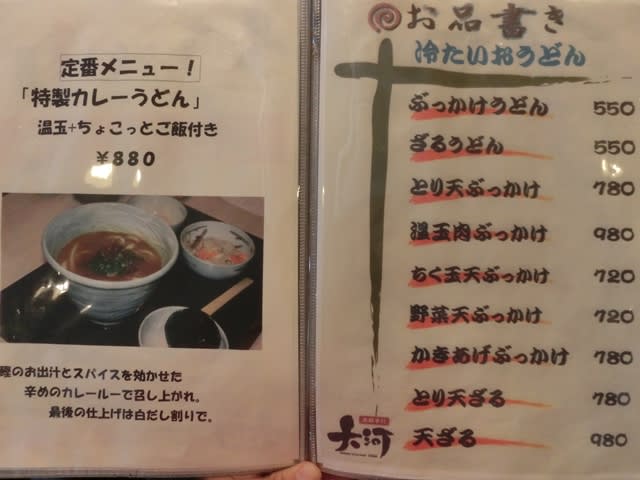 定番メニュー！
「特製カレーうどん」
温玉+ちょこっとご飯付き
￥880
鰹のお出汁とスパイスを効かせた
辛めのカレールーで召し上がれ。
最後の仕上げは白だし割りで。
お品書き
冷たいおうどん
ぶっかけうどん 550
ざるうどん 550
とり天ぶっかけ 780
温玉肉ぶっかけ 980
ちく玉天ぶっかけ 720
野菜天ぶっかけ 720
かきあげぶっかけ 780
とり天ざる 780
天ざる 980
大河